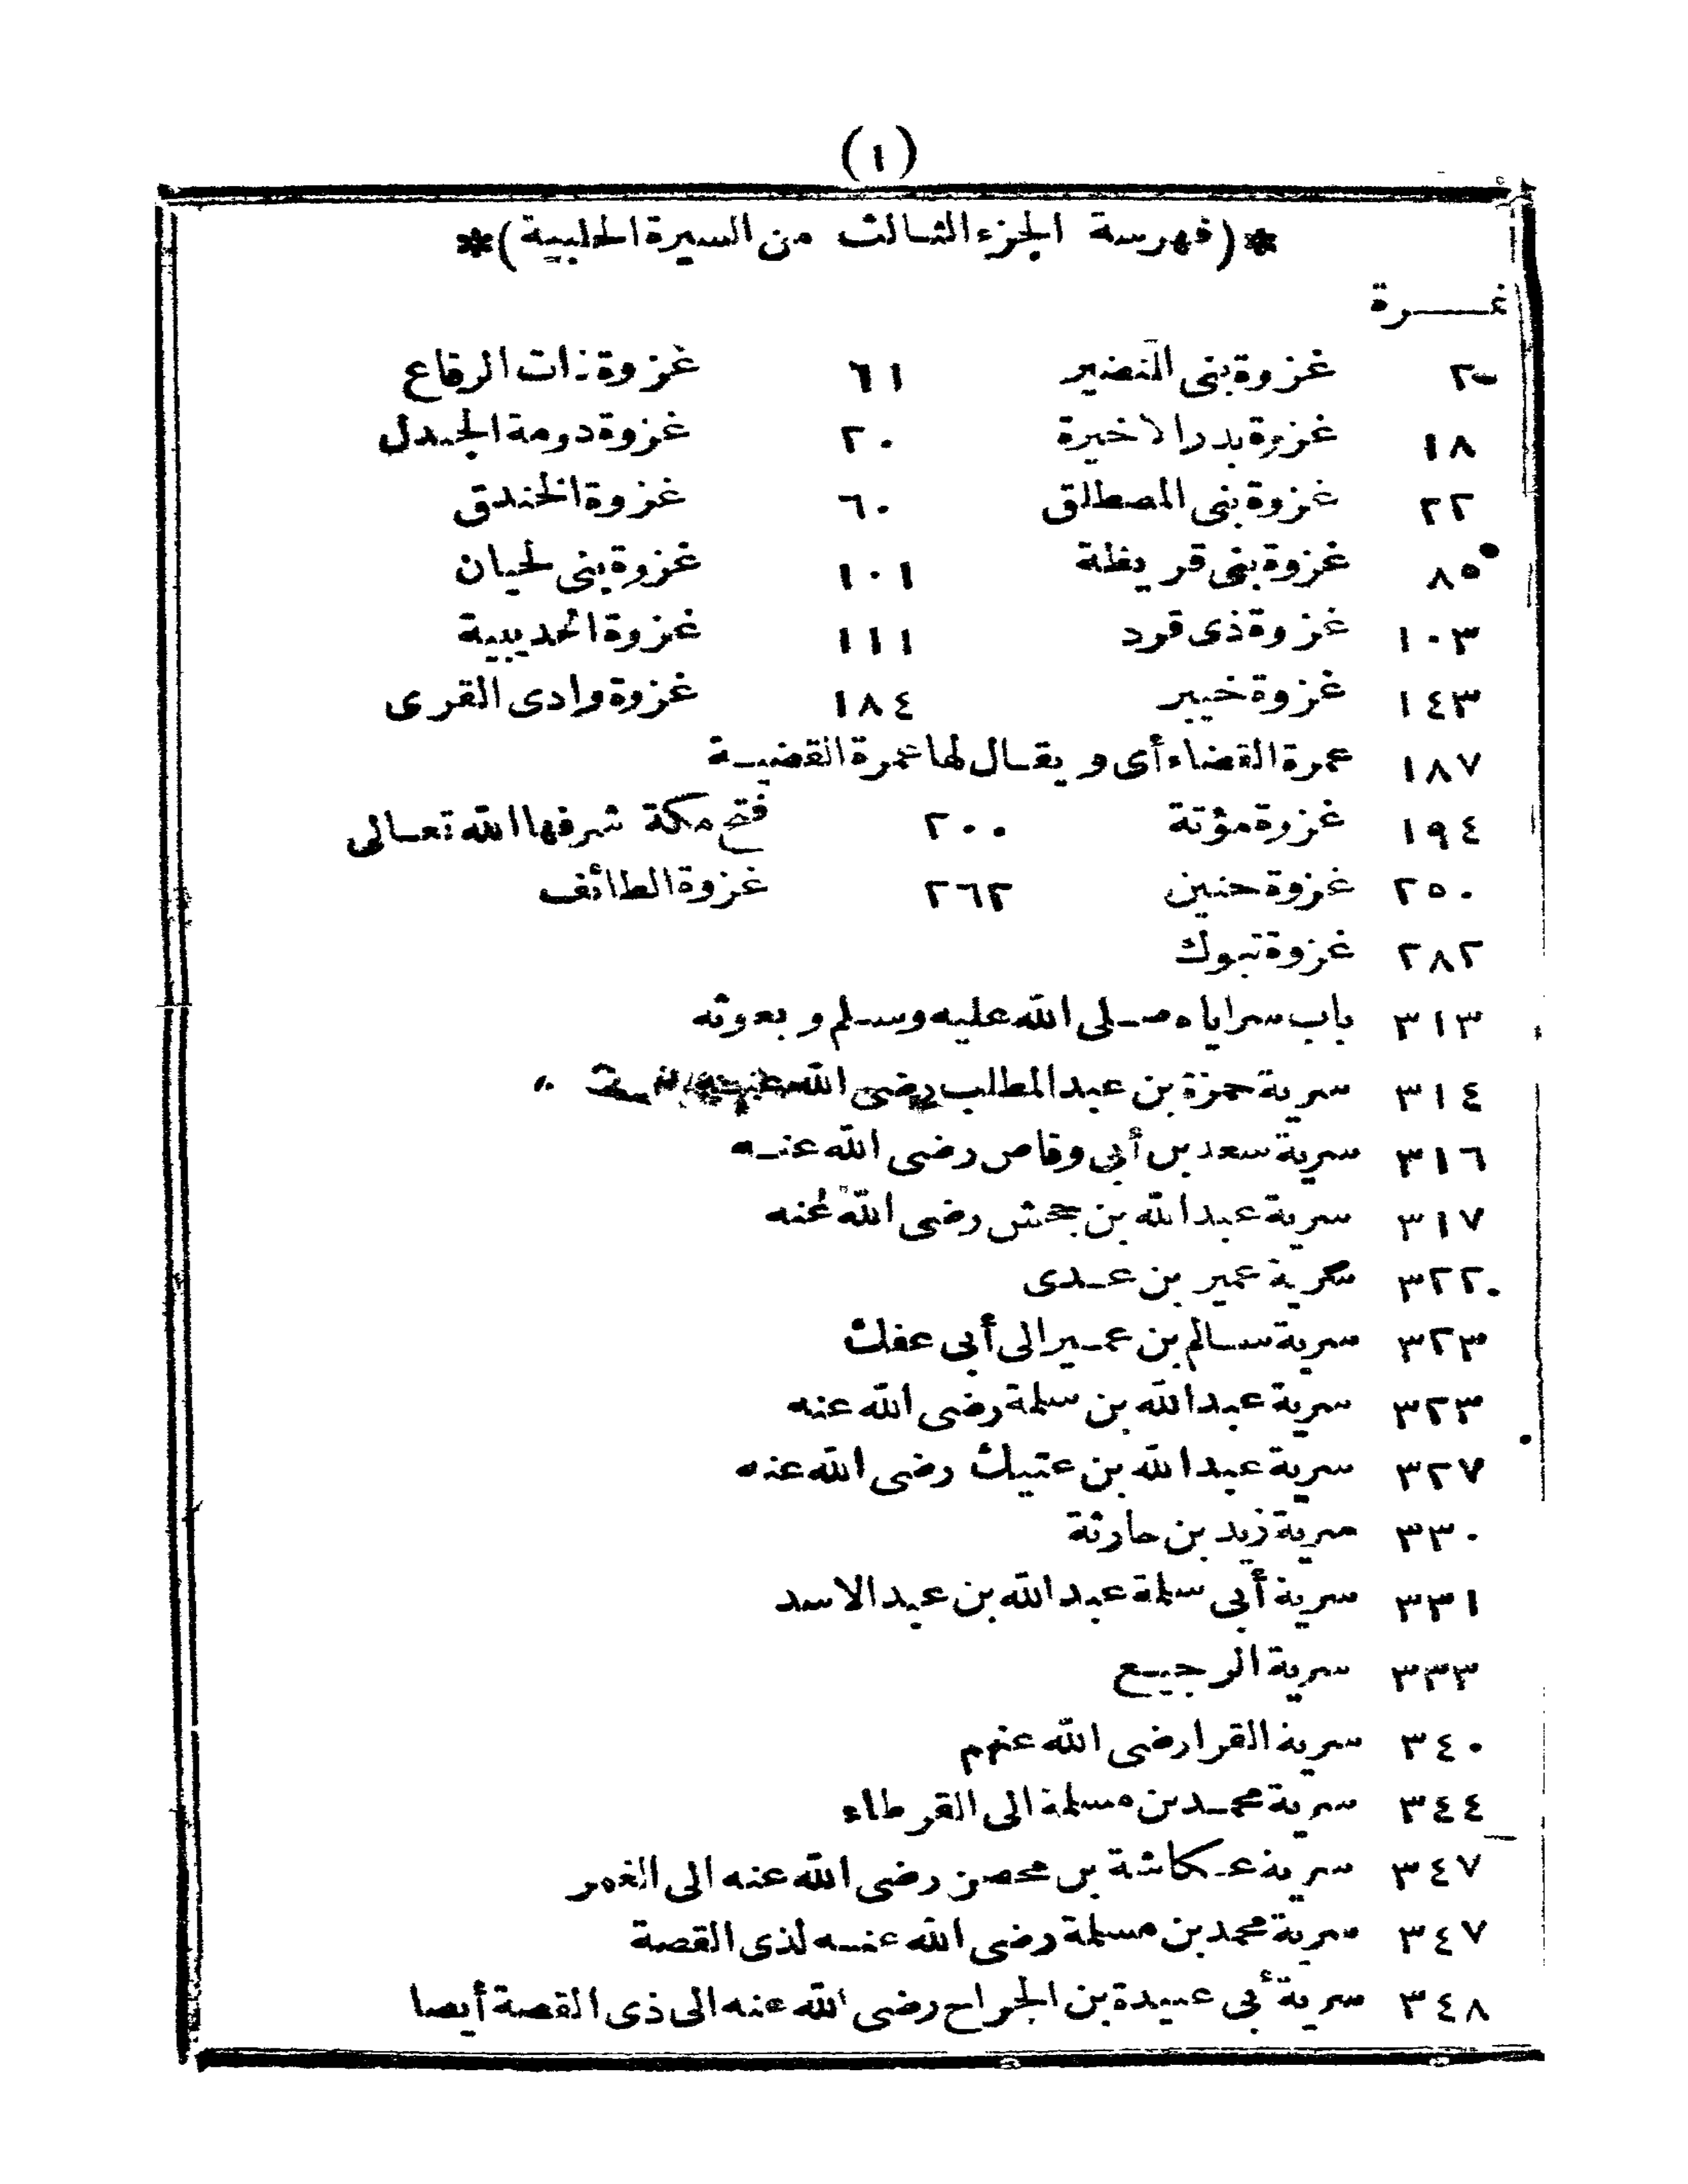 (١)
*(فهرسة الجزء الثالث من السيرة الحلبية)*
نمرة
٢ غزوة بنى النضير ٦١ غزوة ذات الرقاع
١٨ غزوة بدر الاخيرة ٢٠ غزوة دومة الجندل
٢٢ غزوة بنى المصطلق ٦٠ غزوة الخندق
٨٥ غزوة بنى قريظة ١٠١ غزوة بنى لحيان
١٠٣ غزوة ذى قرد ١١١ غزوة الحديبية
١٤٣ غزوة خيبر ١٨٤ غزوة وادى القرى
١٨٧ عمرة القضاء أى ويقال لها عمرة القضية
١٩٤ غزوة مؤتة ٢٠٠ فتح مكة شرفها الله تعالى
٢٥٠ غزوة حنين ٢٦٢ غزوة الطائف
٢٨٢ غزوة تبوك
٣١٣ باب سراياه صلى الله عليه وسلم وبعوثه
٣١٤ سرية حمزة بن عبد المطلب رضى الله عنه
٣١٦ سرية سعد بن أبى وقاص رضى الله عنه
٣١٧ سرية عبد الله بن جحش رضى الله عنه
٣٢٢ سرية عمير بن عدى
٣٢٣ سرية سالم بن عمير الى أبى عفك
٣٢٣ سرية عبد الله بن سلمة رضى الله عنه
٣٢٧ سرية عبد الله بن عتيك رضى الله عنه
٣٣٠ سرية زيد بن حارثة
٣٣١ سرية أبى سلمة عبد الله بن عبد الاسد
٣٣٣ سرية الرجيع
٣٤٠ سرية القرا رضى الله عنهم
٣٤٤ سرية محمد بن مسلمة الى القرطاء
٣٤٧ سرية عكاشة بن محصن رضى الله عنه الى الغمر
٣٤٧ سرية محمد بن مسلمة رضى الله عنه لذى القصة
٣٤٨ سرية أبى عبيدة بن الجراح رضى الله عنه الى ذى القصة أيضا